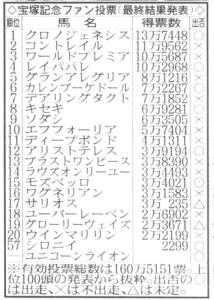 ◇宝塚記念ファン投票（最終結果発表）
順位 馬名 得票数 出否
1 クロノジェネシス 13万7448 ○
2 コントレイル 11万9562 ×
3 ワールドプレミア 10万5687 ×
4 レイパパレ 10万2988 ○
5 グランアレグリア 8万1216 ×
6 カレンブーケドール 7万7071 ○
7 デアリングタクト 7万1852 ×
8 キセキ 6万9281 ○
9 ソダシ 6万3505 ×
10 エフフォーリア 5万7404 ×
11 ディープボンド 4万1311 ×
12 アリストテレス 3万9194 ○
13 ブラストワンピース 3万8390 ×
14 ラヴズオンリーユー
15 モズベッロ
16 ワグネリアン 3万1583 ×
17 サリオス 3万 235 △
18 ユーバーレーベン 2万6902 ×
19 グローリーヴェイズ 2万3671 △
20 ウインマリリン 2万2199
57 シロニイ 2299 ○
ユニコーンライオン ○
※有効投票総数は160万5151票。上
位100頭の発表から抜粋。出否の○
は出走、×は不出走、△は未定。